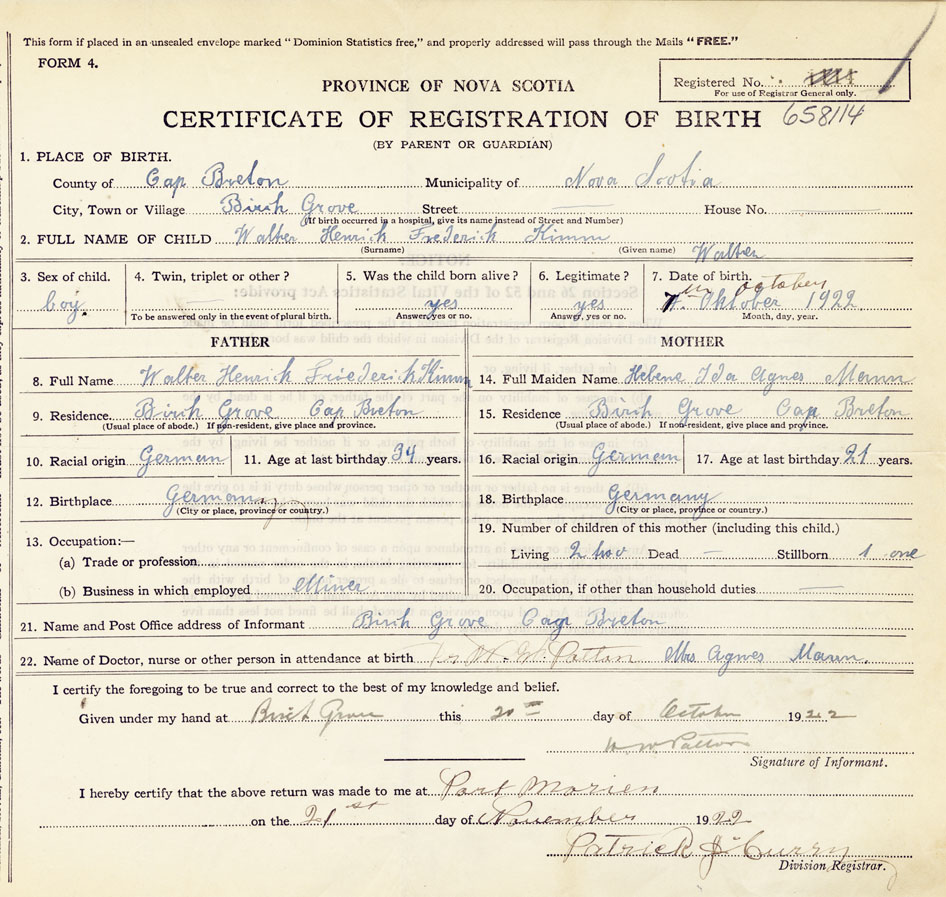 This form if placed in an unsealed envelope marked "Dominion Statistics free," and properly addressed will pass through the Mails "FREE."
FORM 4.
PROVINCE OF NOVA SCOTIA
Registered No.
For use of Registrar General only.
CERTIFICATE OF REGISTRATION OF BIRTH 658114
(BY PARENT OR GUARDIAN)
1. PLACE OF BIRTH.
County of Cap Breton Municipality of Nova Scotia
City, Town or Village Birch Grove Street — House No.
(If birth occurred in a hospital, give its name instead of Street and Number)
2. FULL NAME OF CHILD Walter Henrich Frederick Kimm Walter
(Surname) (Given name)
3. Sex of child. 4. Twin, triplet or other? 5. Was the child born alive? 6. Legitimate? 7. Date of birth.
boy. — yes yes 7. Oktober 1922 October
To be answered only in the event of plural birth. Answer, yes or no. Answer, yes or no. Month, day, year.
FATHER MOTHER
8. Full Name Walter Henrich Friederich Kimm 14. Full Maiden Name Helene Ida Agnes Mann
9. Residence. Birch Grove Cap Breton 15. Residence Birch Grove Cap Breton
(Usual place of abode.) If non-resident, give place and province. (Usual place of abode.) If non-resident, give place and province.
10. Racial origin German 11. Age at last birthday 34 years. 16. Racial origin German 17. Age at last birthday 21 years.
12. Birthplace Germany 18. Birthplace Germany
(City or place, province or country.) (City or place, province or country.)
13. Occupation:— 19. Number of children of this mother (including this child.)
(a) Trade or profession Living 2 two Dead — Stillborn 1 one
(b) Business in which employed Miner 20. Occupation, if other than household duties —
21. Name and Post Office address of Informant Birch Grove Cap Breton
22. Name of Doctor, nurse or other person in attendance at birth Dr W. W. Patton Mrs Agnes Mann.
I certify the foregoing to be true and correct to the best of my knowledge and belief.
Given under my hand at Birch Grove this 20th day of October 1922
W. W. Patton
Signature of Informant.
I hereby certify that the above return was made to me at Port Morien
on the 21st day of November 1922
Patrick J. Curry
Division Registrar.